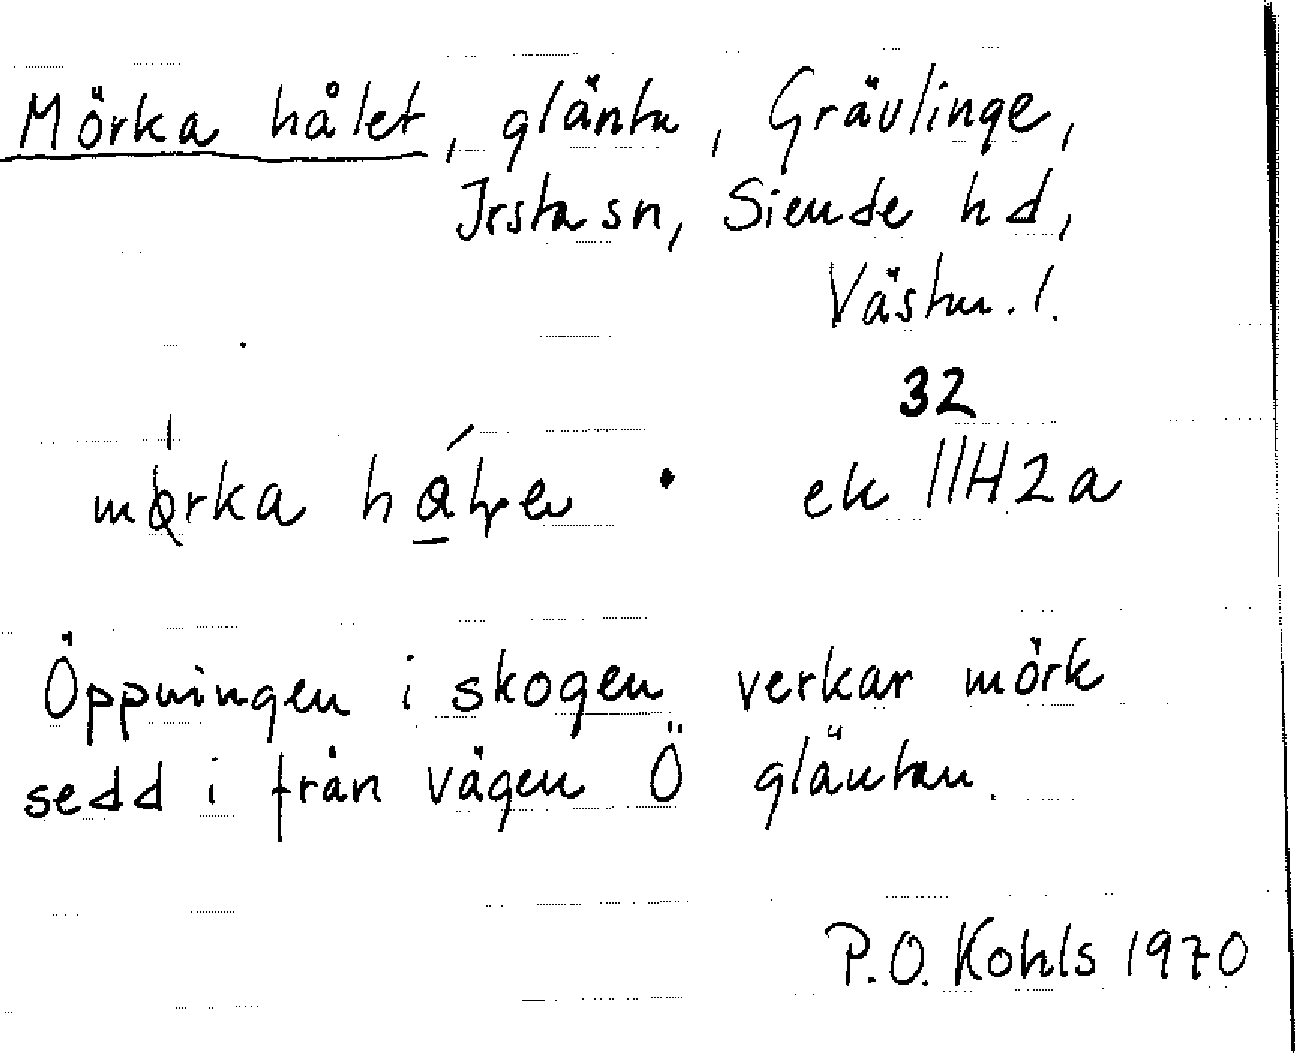 Mörka hålet, glänta, Grävlinge,
Irsta sn, Siende hd,
Västm. l.
32
ek 11H2a
Öppningen i skogen verkar mörk
sedd i från vägen Ö gläntan.
P.O. Kohls 1970